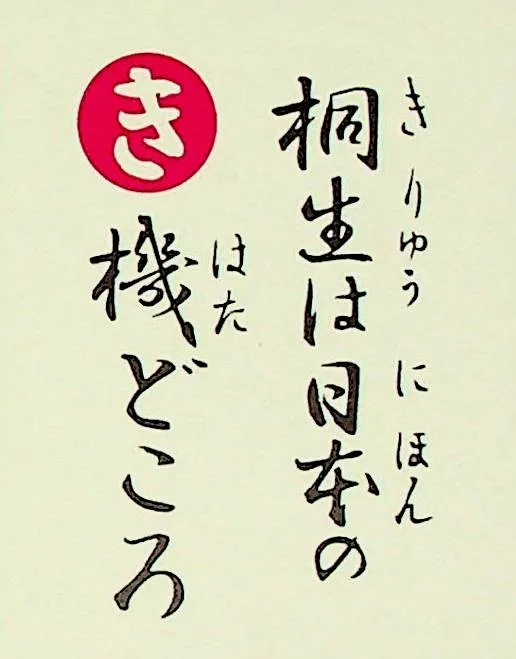 桐生は日本の
きりゅう にほん
き
機どころ
はた